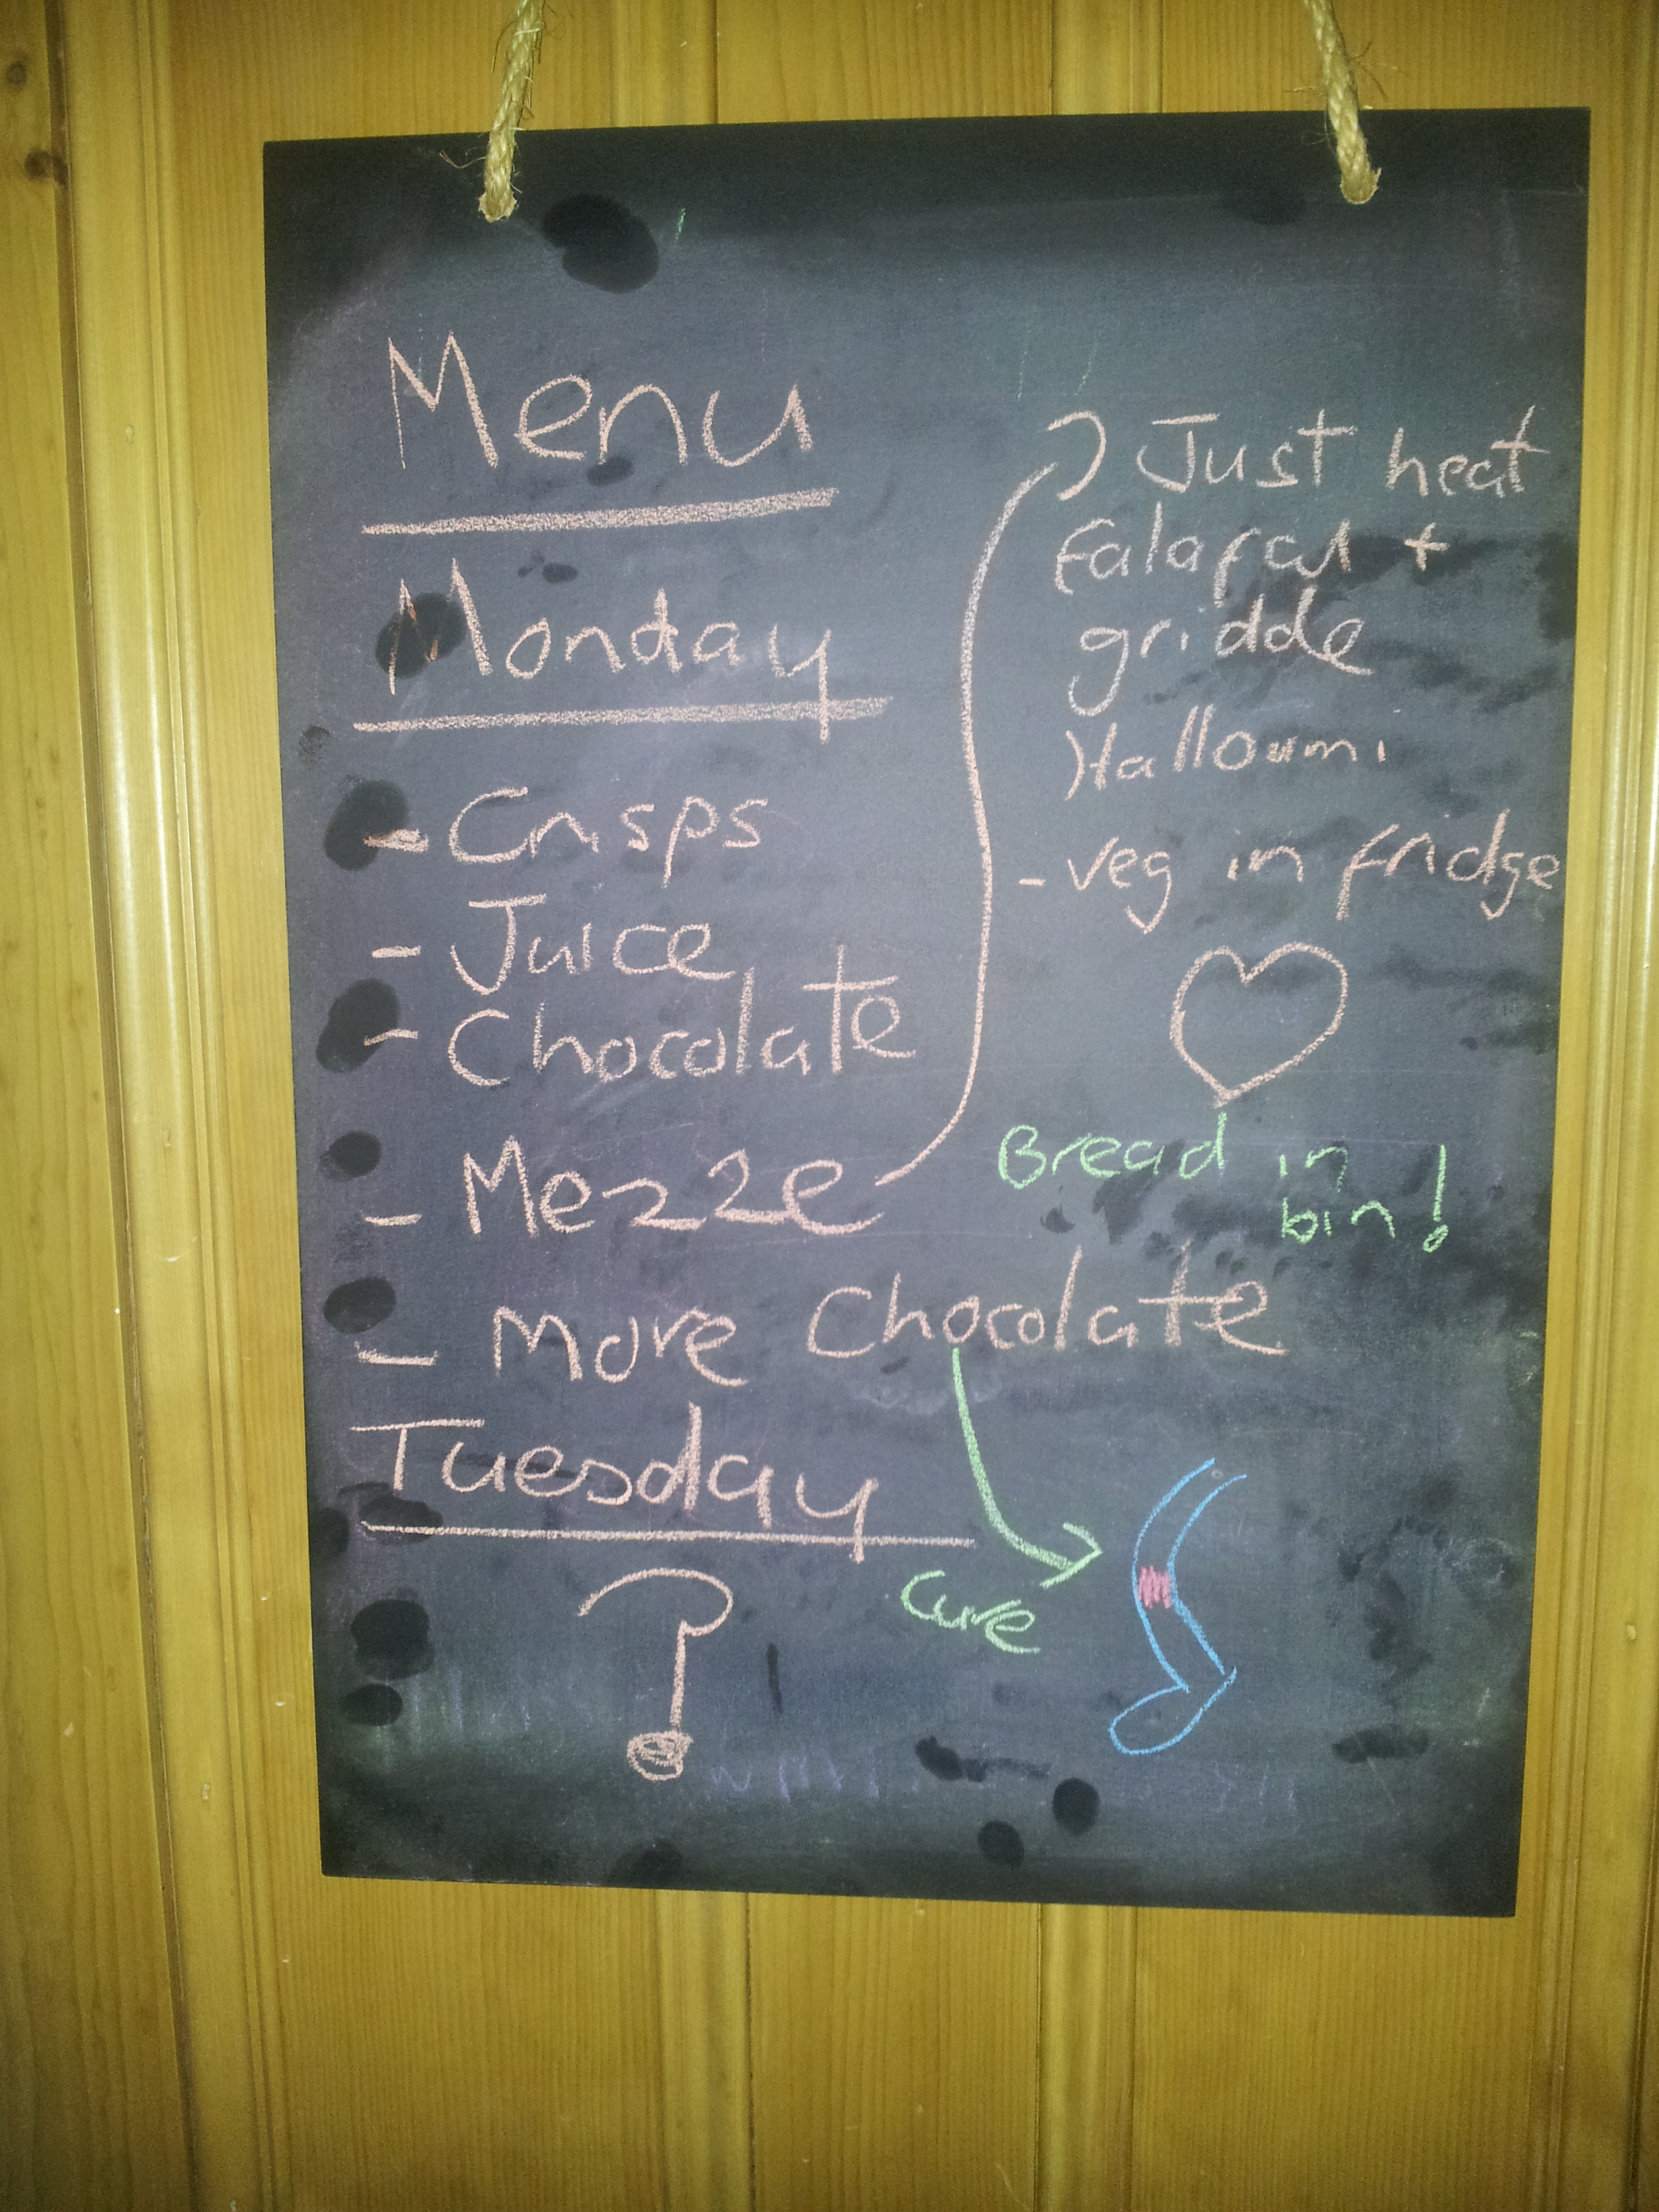 Menu
Monday
- Crisps
- Juice
- Chocolate
- Mezze
- More Chocolate
Tuesday
?
Just heat
Falafal +
gridde
Halloumi
- veg in fridge
Bread in
bin!
Cure